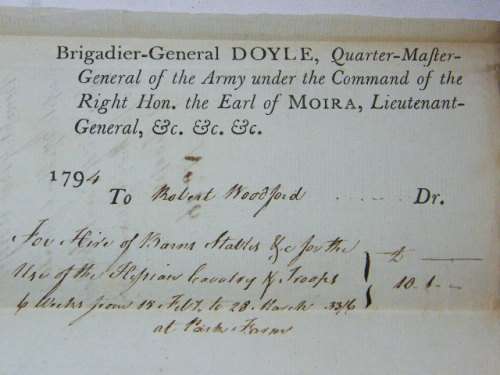 Brigadier-General DOYLE, Quarter-Maſter-
General of the Army under the Command of the
Right Hon. the Earl of MOIRA, Lieutenant-
General, &c. &c. &c.
1794
To Robert Woodford ..... Dr.
For Hire of Barns Stables &c for the
Use of the Hessian Cavalry & Troops
6 Weeks from 18 Feby to 28 March 33/6
at Park Farm
£
10 . 1 . -